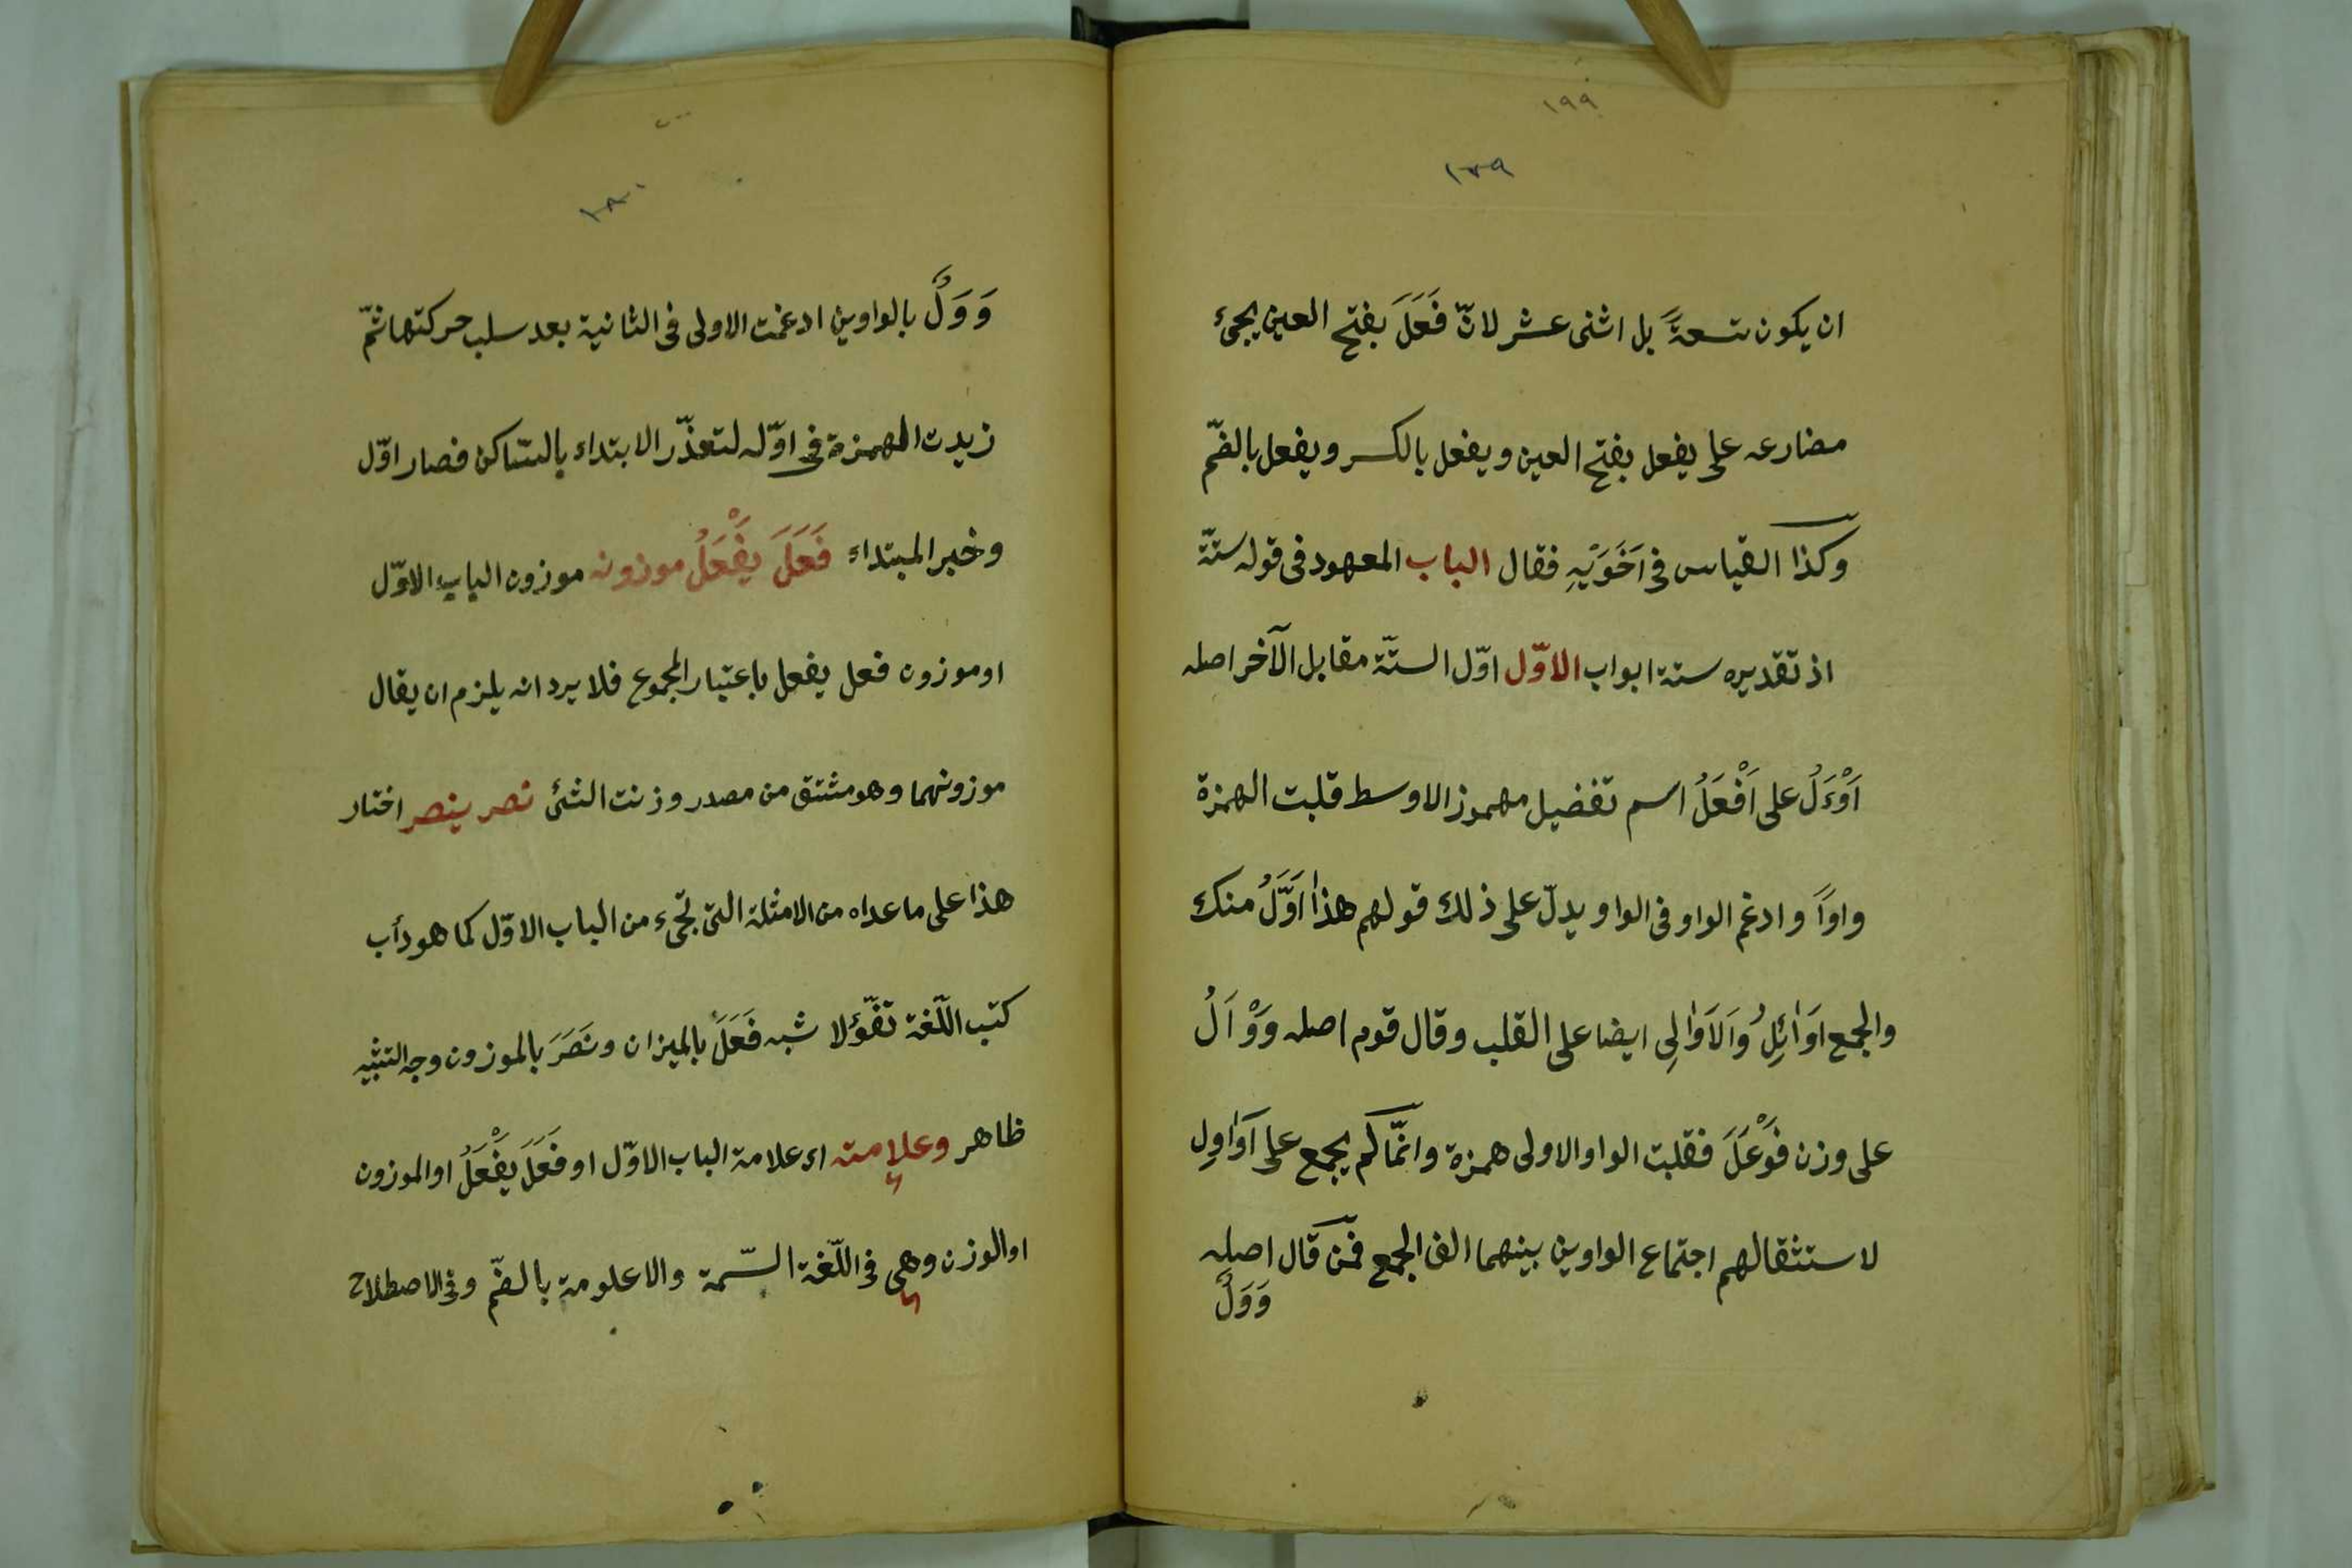 ١٩٩
١٧٩
ان يكون تسعةً بل اثنى عشر لانّ فَعَلَ بفتح العين يجئ
مضارعه على يفعل بفتح العين ويفعل بالكسر ويفعل بالضّم
وكذا القياس فى اَخَوَيْهِ فقال الباب المعهود فى قوله ستّة
اذ تقديره ستة ابواب الاوّل اوّل الستّة مقابل الآخر اصله
اَوْءَلُ على اَفْعَلُ اسم تفضيل مهموز الاوسط قلبت الهمزة
واواً وادغم الواو فى الواو يدلّ على ذلك قولهم هذا اَوَّلُ منك
والجمع اوَائِلُ وَالاَوَالِى ايضا على القلب وقال قوم اصله وَوْاَلُ
على وزن فَوْعَلَ فقلبت الواو الاولى همزة وانّما لم يجمع على اَوَاوِل
لاستثقالهم اجتماع الواوين بينهما الف الجمع فمن قال اصله
وَوَلٌ
١٨٠
وَوَلٌ بالواوين ادغمت الاولى فى الثانية بعد سلب حركتها ثمّ
زيدت الهمزة فى اوّله لتعذّر الابتداء بالسّاكن فصار اوّل
وخبر المبتداء فَعَلَ يَفْعَلُ موزونه موزون الباب الاوّل
او موزون فعل يفعل باعتبار المجموع فلا يرد انه يلزم ان يقال
موزونهما وهو مشتق من مصدر وزنت الشئ نصر ينصر اختار
هذا على ما عداه من الامثلة التى تجئ من الباب الاوّل كما هو دأب
كتب اللّغة تفّؤلا شبه فَعَلَ بالميزان ونَصَرَ بالموزون وجه التشبيه
ظاهر وعلامته اى علامة الباب الاوّل او فَعَلَ يَفْعَلُ او الموزون
او الوزن وهى فى اللّغة السّمة والاعلومة بالضّم وفى الاصطلاح